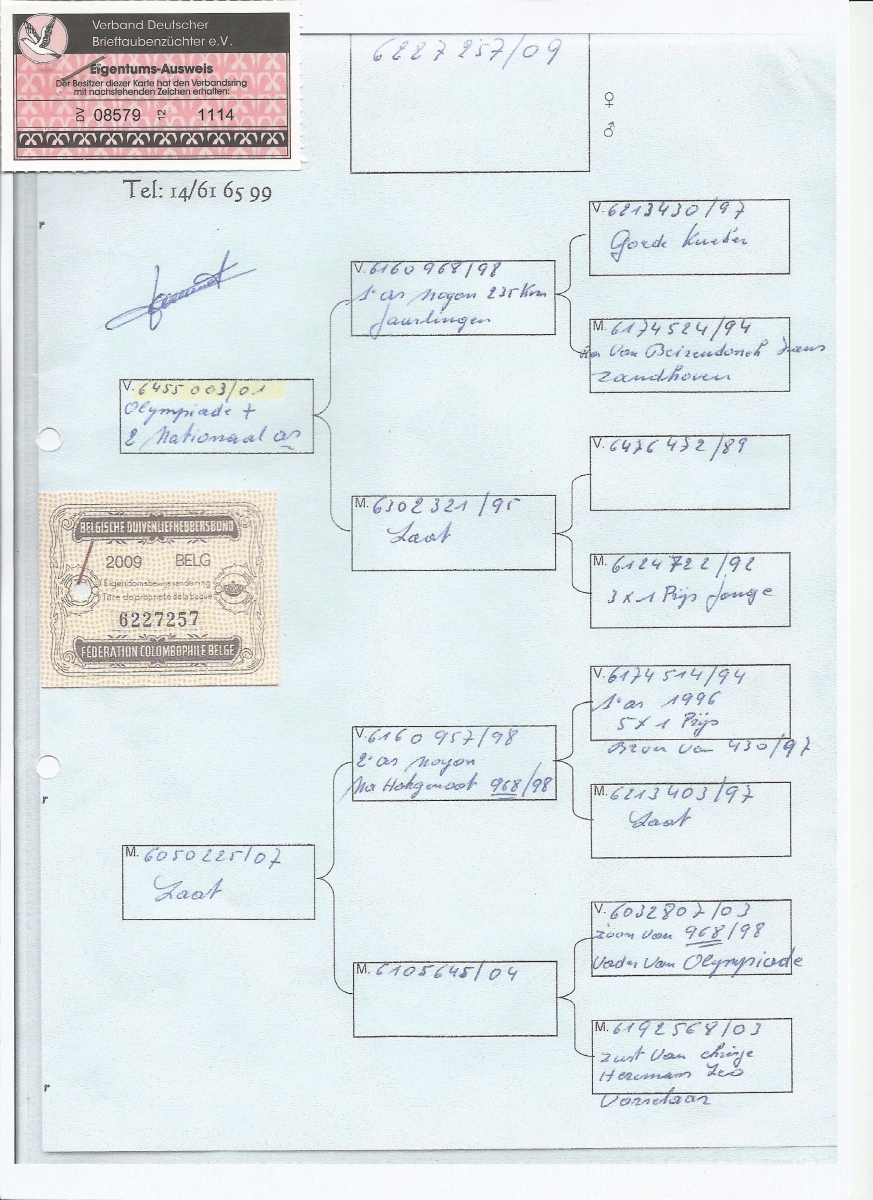 Verband Deutscher
Brieftaubenzüchter e.V.
Eigentums-Ausweis
Der Besitzer diezer Karte hat den Verbandsring
mit nachstehenden Zeichen erhalten:
DV 08579 12 1114
6227257/09
♀
♂
Tel: 14/61 65 99
r
V. 6455003/01
Olympiade +
2 Nationaal as
BELGISCHE DUIVENLIEFHEBBERSBOND
2009 BELG
Eigendomsbewijs van de ring
Titre de propriété de la bague
6227257
FÉDÉRATION COLOMBOPHILE BELGE
r
M. 6050225/07
Laat
r
V. 6160968/98
1e as Noyon 235 Km
Jaarlingen
M. 6302321/95
Laat
V. 6160957/98
2e as Noyon
Na Hokgenoot 968/98
M. 6105645/04
V. 6213430/97
Goede Kweker
M. 6174524/94
Van Beirendonck Frans
Zandhoven
V. 6476472/89
M. 6124722/92
3 x 1 Prijs Jonge
V. 6174514/94
1e as 1996
5 x 1 Prijs
Broer van 430/97
M. 6213403/97
Laat
V. 6032807/03
Zoon van 968/98
Vader van Olympiade
M. 6192568/03
Zust van
Heremans Leo
Vorselaar